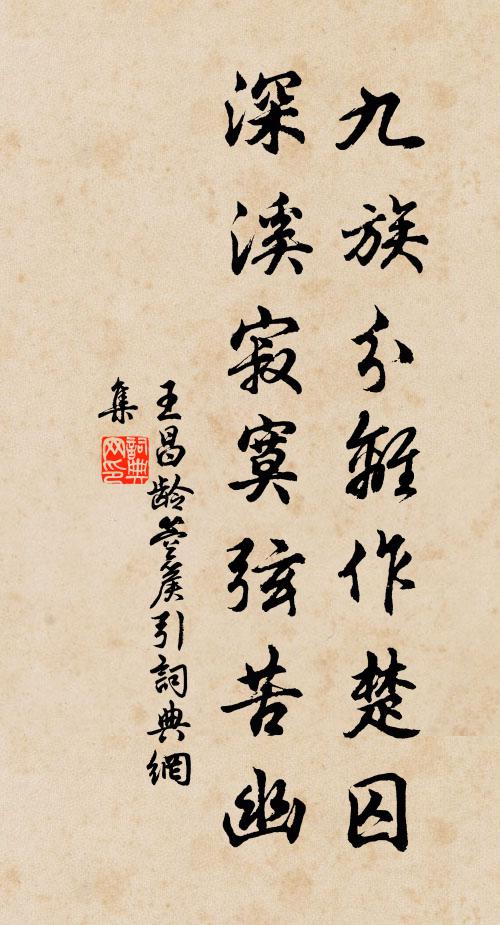 九族分離作楚囚
深溪寂寞弦苦幽
王昌龄箜篌引詞典網
集
詞典
网印